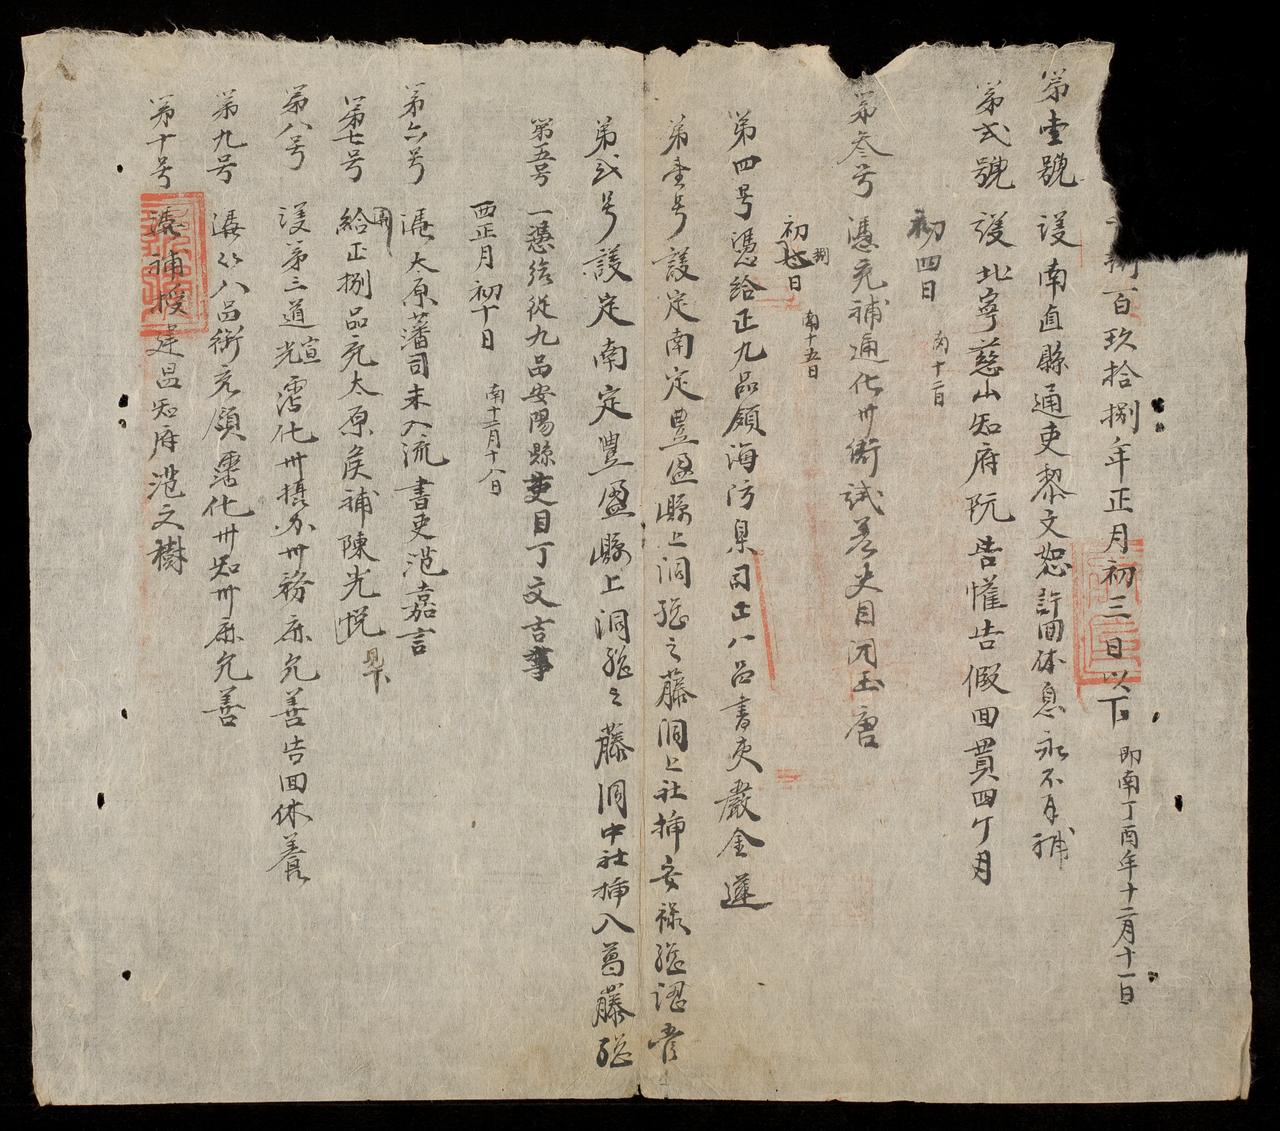 捌百玖拾捌年正月初三日以下 即南丁酉年十二月十一日
第壹號 護南直縣通吏黎文恕許回休息永不再補
第貳號 護北寧慈山知府阮告懽告假回貫四個月
初四日 南十二日
第叁号 憑充補通化卅衙試差吏目阮玉唐
初捌日 南十五日
第四号憑給正九品領海防臬司正八品書吏嚴金蓮
第壹号護定南定豊盈縣上洞總之藤洞上社挿安祿總認
第貳号護定南定豊盈縣上洞總之藤洞中社挿入葛藤總
第五号 一憑給從九品安陽縣吏目丁文吉
西正月初十日 南十二月十八日
第六号 憑太原藩司未入流書吏范嘉言
第七号 給正捌品充太原候補陳光悅
第八号 護第三道宣光霑化卅攝办卅務麻允善告回休養
第九号 八品衔充領霑化卅知卅麻允善
第十号 憑補授建昌知府范文樹